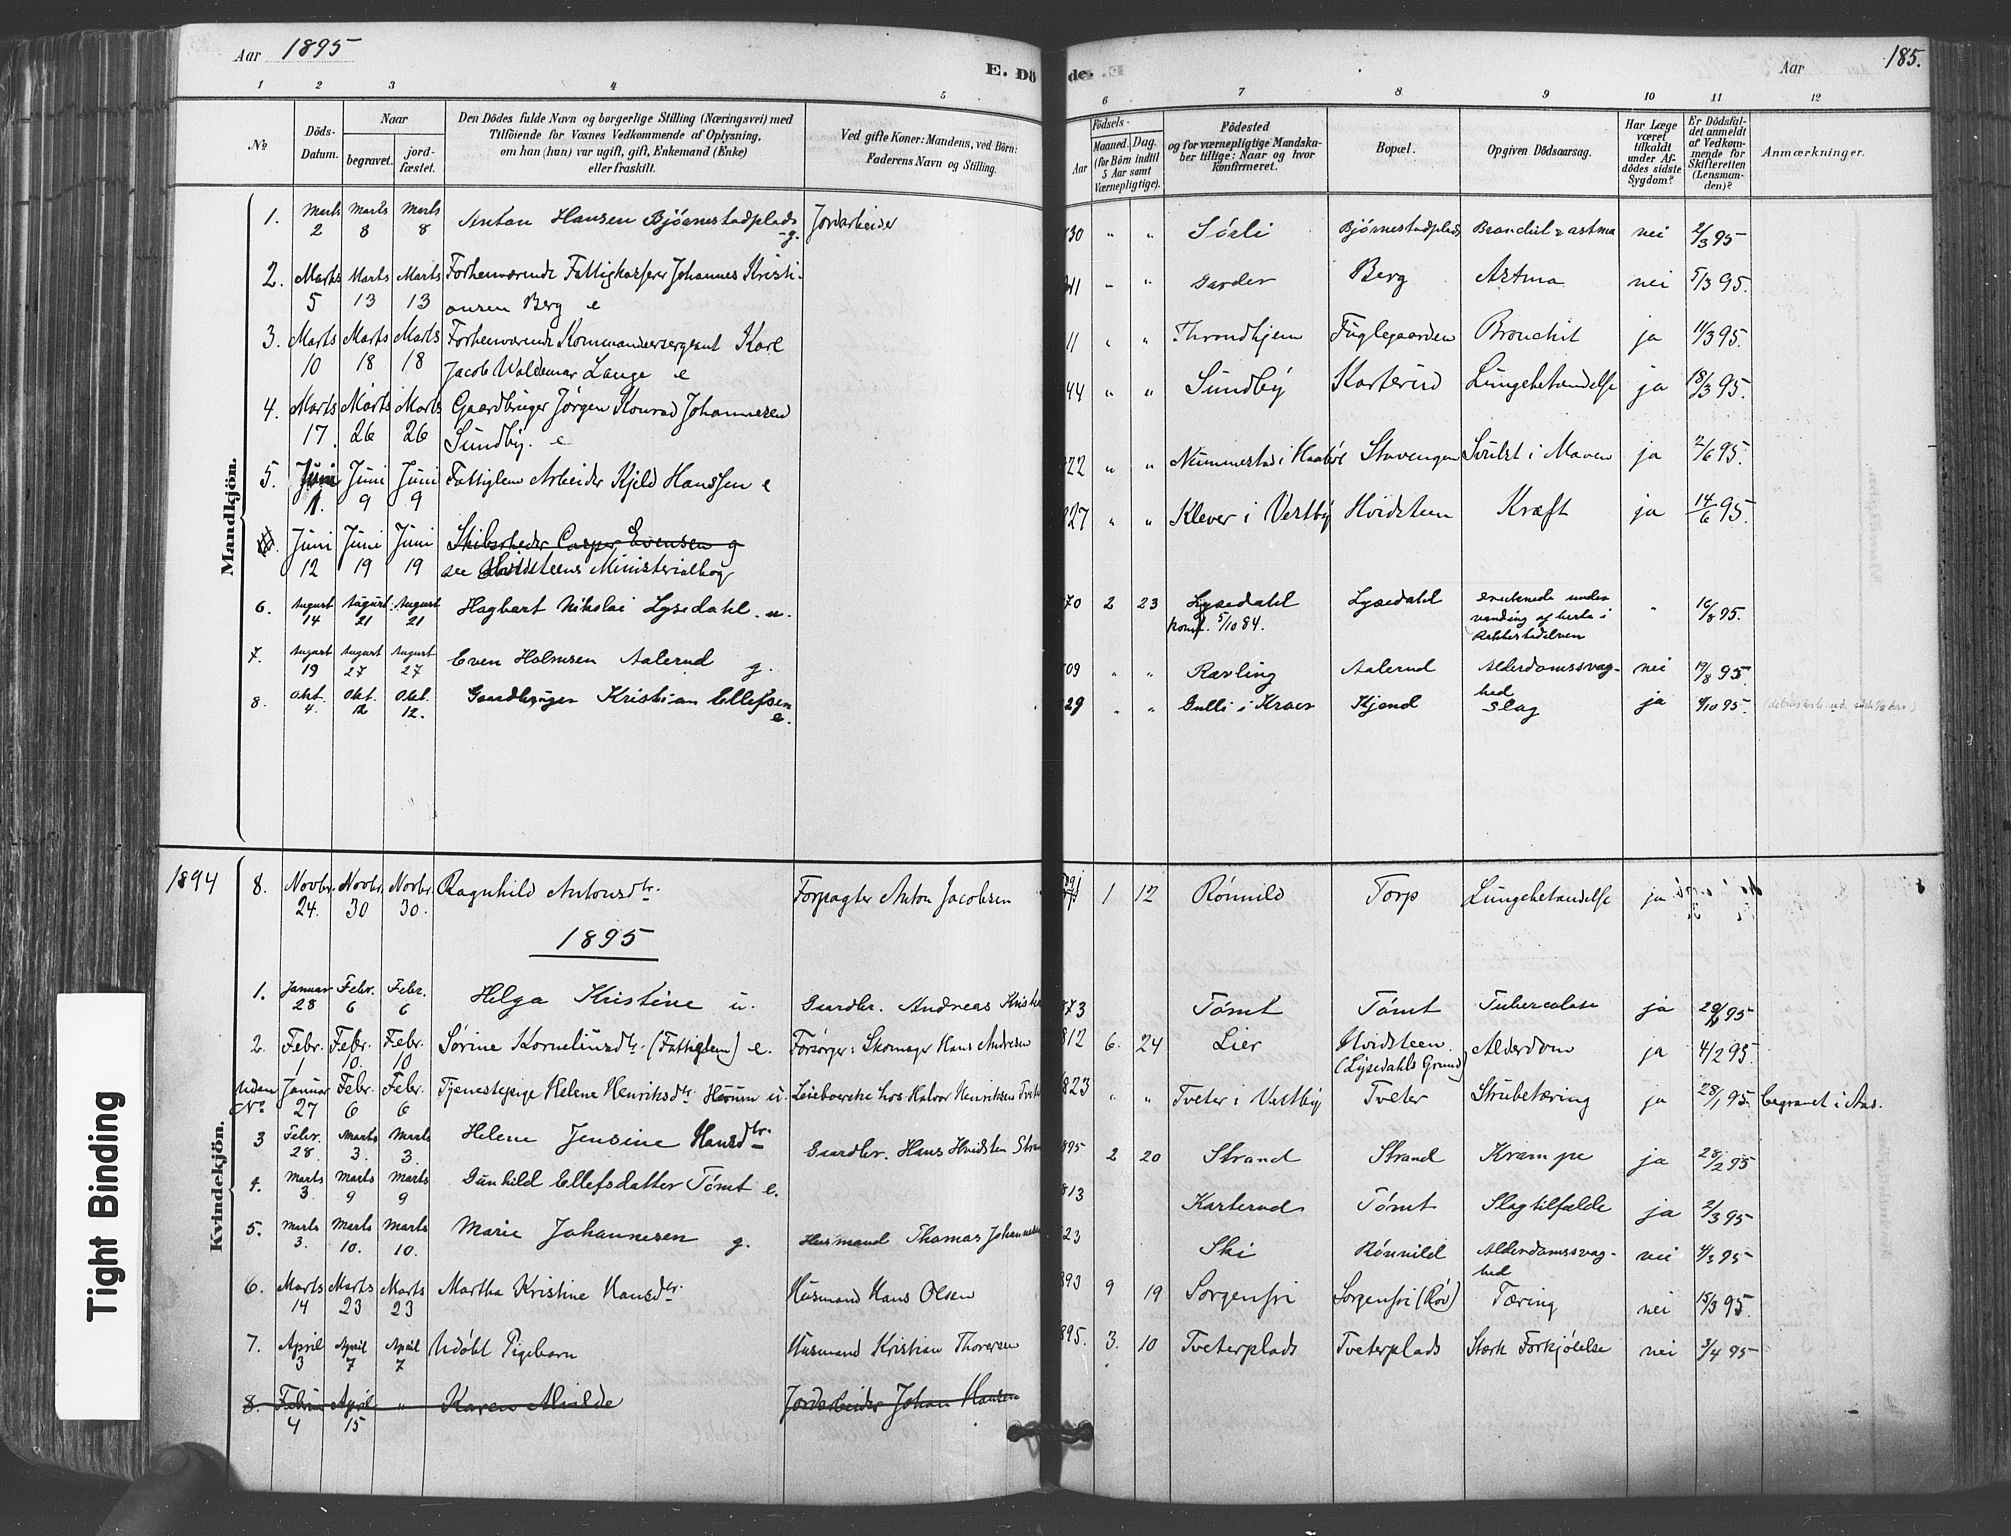 Aar 1895
E. Dö
de.
Aar
185.
1 2 3 4 5 6 7 8 9 10 11 12
No
Döds-Datum.
Naar
begravet.
jord-fæstet.
Den Dödes fulde Navn og borgerlige Stilling (Næringsvei) med
Tilföiende for Voxnes Vedkommende af Oplysning,
om han (hun) var ugift, gift, Enkemand (Enke)
eller fraskilt.
Ved gifte Koner: Mandens, ved Börn:
Faderens Navn og Stilling.
Födsels-
Aar
Maaned. Dag.
(for Börn indtil
5 Aar samt
Værnepligtige).
Födested
og for værnepligtige Mandska-
ber tillige: Naar og hvor
konfirmeret.
Bopæl.
Opgiven Dödsaarsag.
Har Læge
været
tilkaldt
under Af-
dödes sidste
Sygdom?
Er Dödsfal-
det anmeldt
af Vedkom-
mende for
Skifteretten
(Lensman-
den)?
Anmærkninger.
Mandkjön.
1. Marts 2 Marts 8 Marts 8 Anton Hansen Bjørnestadplads g. Jordarbeider 30 " " Sørli Bjørnestadplads Bronchit & astma nei 2/3 95
2. Marts 5 Marts 13 Marts 13 Forhenværende Fattigkasserer Johannes Kristi-
ansen Berg e 41 " " Garder Berg Astma nei 5/3 95.
3. Marts 10 Marts 18 Marts 18 Forhenværende Kommandersergeant Karl
Jacob Waldemar Lange e 11 " " Throndhjem Fuglegaarden Bronchit ja 11/3 95.
4. Marts 17. Marts 26 Marts 26 Gaardbruger Jørgen Konrad Johannesen
Sundby. e 44 " " Sundby Karterud Lungebetændelse ja 18/3 95.
5. Juni 1. Juni 9 Juni 9 Fattiglem Arbeider Kjeld Hanssen e 22 " " Nummestad i Haabøl Stavengen Svulst i Maven ja 2/6 95.
Juni 12 Juni 19 Juni 19 Skibsrheder Casper Evensen g
see Hvidsteens Ministerialbog 27 " " Klever i Vestby Hvidsteen Kræft ja 14/6 95.
6. August 14 August 21 August 21 Hagbart Nikolai Lysedahl. u. 70 2 23 Lysedahl
konf. 5/10 84. Lysedahl druknede under
vanding af heste i " 16/8 95.
7. August 19 August 27 August 27 Even Holmsen Aalerud g. 09 " " Ravling Aalerud Alderdomssvag-
hed nei 19/8 95.
8. Okt. 4. Okt. 12 Okt. 12. Gaardbruger Kristian Ellefsen e. 29 " " Gulli i Kraer Kjend Slag ja 4/10 95.
Kvindekjön.
1894 8. Novbr. 24. Novbr. 30 Novbr. 30. Ragnhild Antonsdtr. Forpagter Anton Jacobsen 1 12 Rønnild Torp Lungebetændelse ja
1895
1. Januar 28 Febr. 6 Febr. 6 Helga Kristine u. Gaardbr. Andreas Krist 873 Tømt Tømt Tuberculose ja 95
2. Febr. 1 Febr. 10. Febr. 10 Sørine Korneliusdtr. (Fattiglem) e. Forsørger: Skomager Hans Andresen 812 6. 24 Lier Hvidsteen
(Lysedahls Grund) Alderdom ja 4/2 95.
Uden No. Januar 27 Febr. 6 Febr. 6 Tjenestepige Helene Henriksdtr. Herum u. Leieboerske hos Halvor Henriksen Tvet 823 " " Tveter i Vestby Tveter Strubetæring ja 28/1 95. begravet i Aas.
3 Febr. 28. Marts 3. Marts 3. Helene Jensine Hansdtr. Gaardbr. Hans Hvidsten Stran 895 2 20 Strand Strand Krampe ja 28/2 95
4. Marts 3 Marts 9 Marts 9 Gunhild Ellefsdatter Tømt e. 813 Karterud Tømt Slagtilfælde ja 2/3 95
5. Marts 3. Marts 10. Marts 10. Marie Johannesen g. Husmand Thomas Johannesen 23 Ski Rønnild Alderdomssvag-
hed nei 4/3 95
6. Marts 14 Marts 23 Marts 23 Martha Kristine Hansdtr. Husmand Hans Olsen 893 9 19 Sorgenfri Sorgenfri (Røv) Tæring nei 15/3 95.
7. April 3 April 7 April 7 Udøbt Pigebarn Husmand Kristian Thoresen 895. 3. 10 Tveterplads Tveterplads Stærk Forkjølelse nei 3/4 95
8. Februar 4 April 15 " Karen Milde Jordarbeider Johan Hansen
Tight Binding